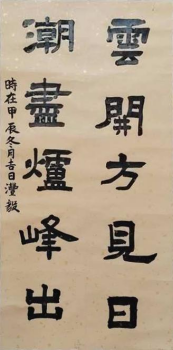 雲開方見日
潮盡爐峰出
時在甲辰冬月吉日灃毅